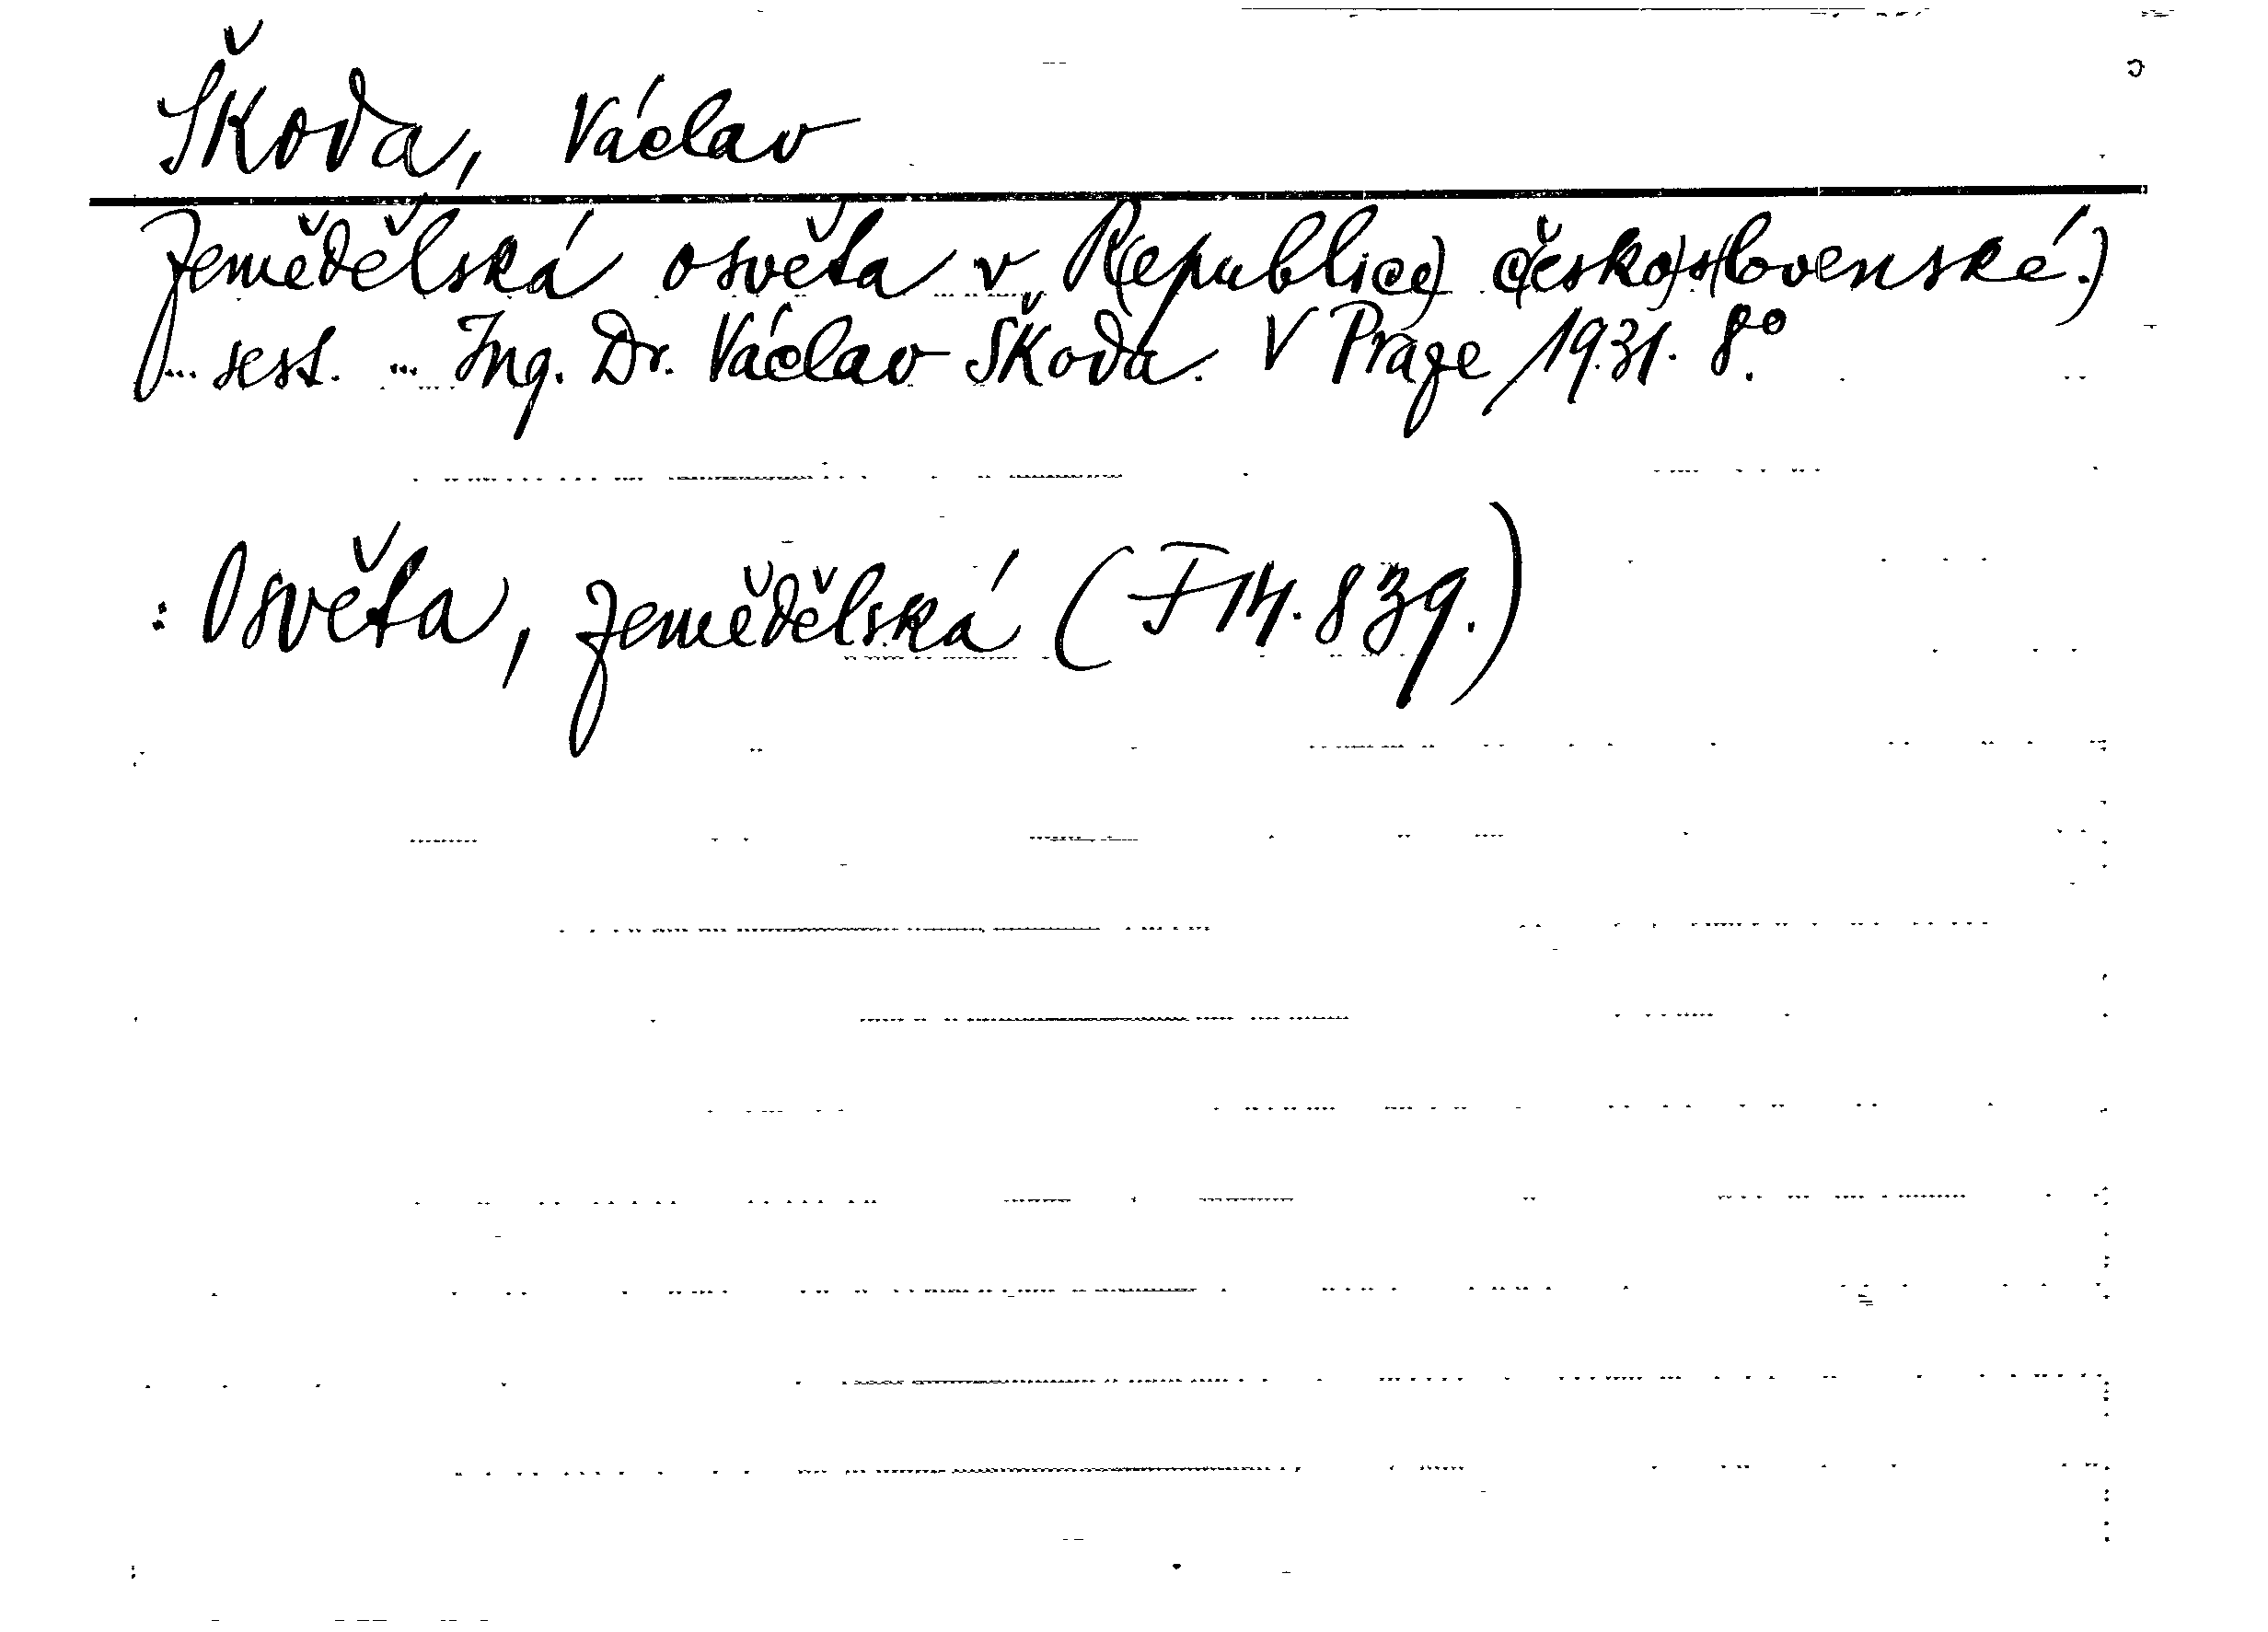 Škoda, Václav
Zemědělská osvěta v R(epublice) č(esko)s(lovenské.)
... sest. ... Ing. Dr. Václav Škoda. V Praze, 1931. 8°.
: Osvěta, zemědělská (F 14.839.)